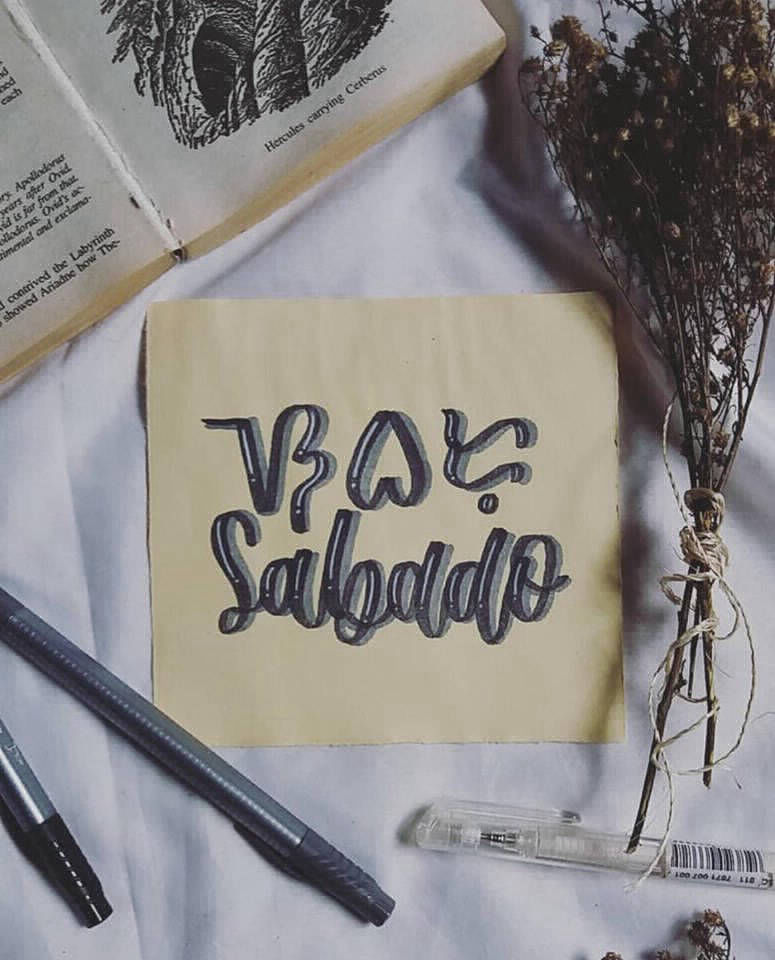 Hercules carrying Cerberus
each
Apollodorus
years after Ovid.
is far from that
Ovid's ac-
and exclama-
contrived the Labyrinth
showed Ariadne how The-
ᜐᜊᜇᜓ
Sabado